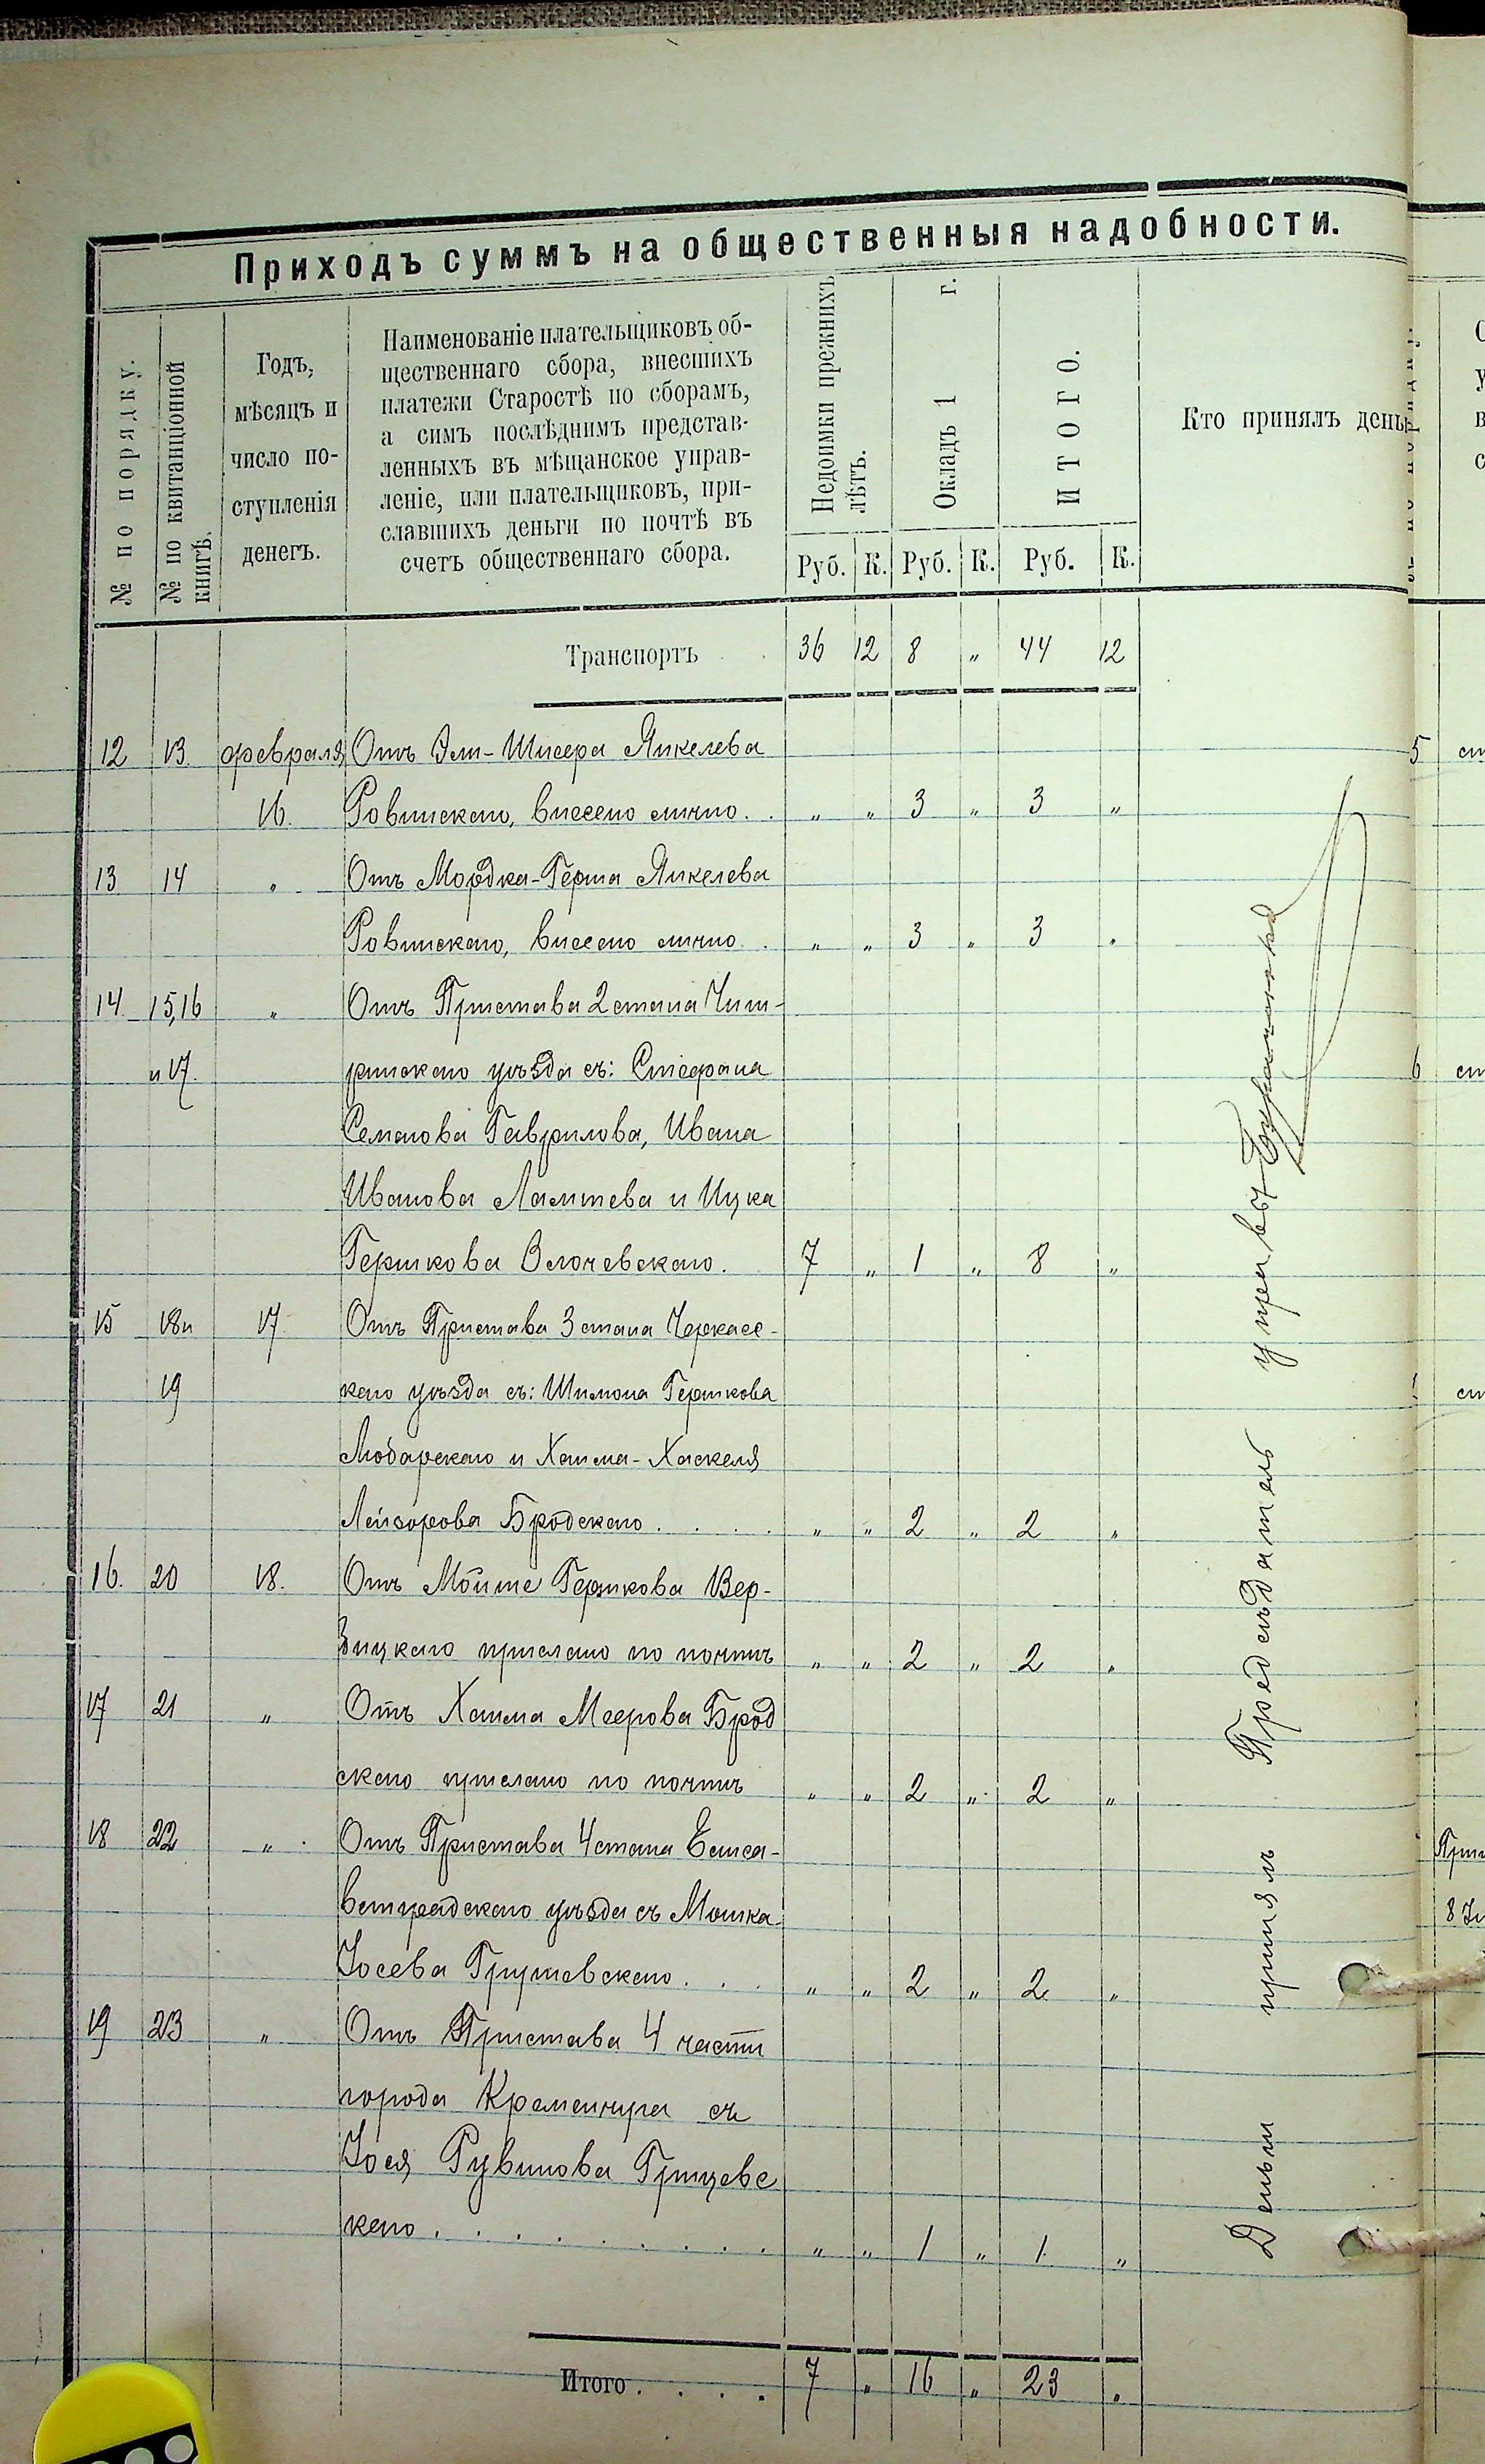 Приходъ суммъ на общественныя надобности.
№ по порядку.
№ по квитанціонной
книгѣ.
Годъ,
мѣсяцъ и
число по-
ступленія
денегъ.
Наименованіе плательщиковъ об-
щественнаго сбора, внесшихъ
платежи Старостѣ по сборамъ,
а симъ послѣднимъ представ-
ленныхъ въ мѣщанское управ-
леніе, или плательщиковъ, при-
славшихъ деньги по почтѣ въ
счетъ общественнаго сбора.
Недоимки прежнихъ
лѣтъ.
Окладъ 1 г.
ИТОГО.
Кто принялъ день
Руб. К. Руб. К. Руб. К.
Транспортъ 36 12 8 „ 44 12
12 13 февраля Отъ Эли-Шлсера Янкелева
16. Ровинскаго, внесено лично. . „ „ 3 „ 3 „
13 14 „ Отъ Мордка-Герша Янкелева
Ровинскаго, внесено лично. . „ „ 3 „ 3 „
14. 15,16 „ Отъ Пристава 2 стана Чиги-
и 17. ринскаго уѣзда съ: Стефана
Семенова Гаврилова, Ивана
Иванова Лаптева и Ицка
Гершкова Злочевскаго. 7 „ 1 „ 8 „
15 18 и 17. Отъ Пристава 3 стана Черкасс-
19 каго уѣзда съ: Шимона Гершкова
Любарскаго и Хаима-Хаскеля
Лейзорова Бродскаго . . . . „ „ 2 „ 2 „
16. 20 18. Отъ Мойше Гершкова Вер-
зицкаго прислано по почтѣ „ „ 2 „ 2 „
17 21 „ Отъ Хаима Меерова Брод
скаго прислано по почтѣ „ „ 2 „ 2 „
18 22 „ Отъ Пристава 4 стана Елиса-
ветградскаго уѣзда съ Мошка
Іосева Грушевскаго . . . „ „ 2 „ 2 „
19 23 „ Отъ Пристава 4 части
города Кременчуга съ
Іося Рувинова Грицевс
каго . . . . . . . . . „ „ 1 „ 1. „
Итого . . . . 7 „ 16 „ 23 „
Деньги принялъ Предсѣдатель управы
5
6